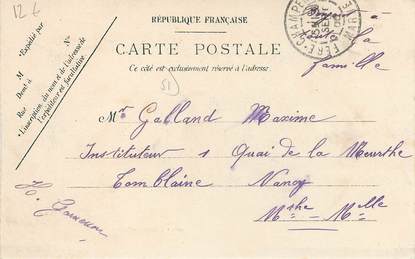 12 €
RÉPUBLIQUE FRANÇAISE
CARTE POSTALE
Ce côté est exclusivement réservé à l'adresse
Expédié par
M
Demt à
Rue N°
L'inscription du nom et de l'adresse de
l'expéditeur est facultative
FÈRE-CHAMPE
la
famille
51
Mr Galland Maxime
Instituteur 1 Quai de la Meurthe
Tomblaine Nancy
Mthe - Mlle
H.